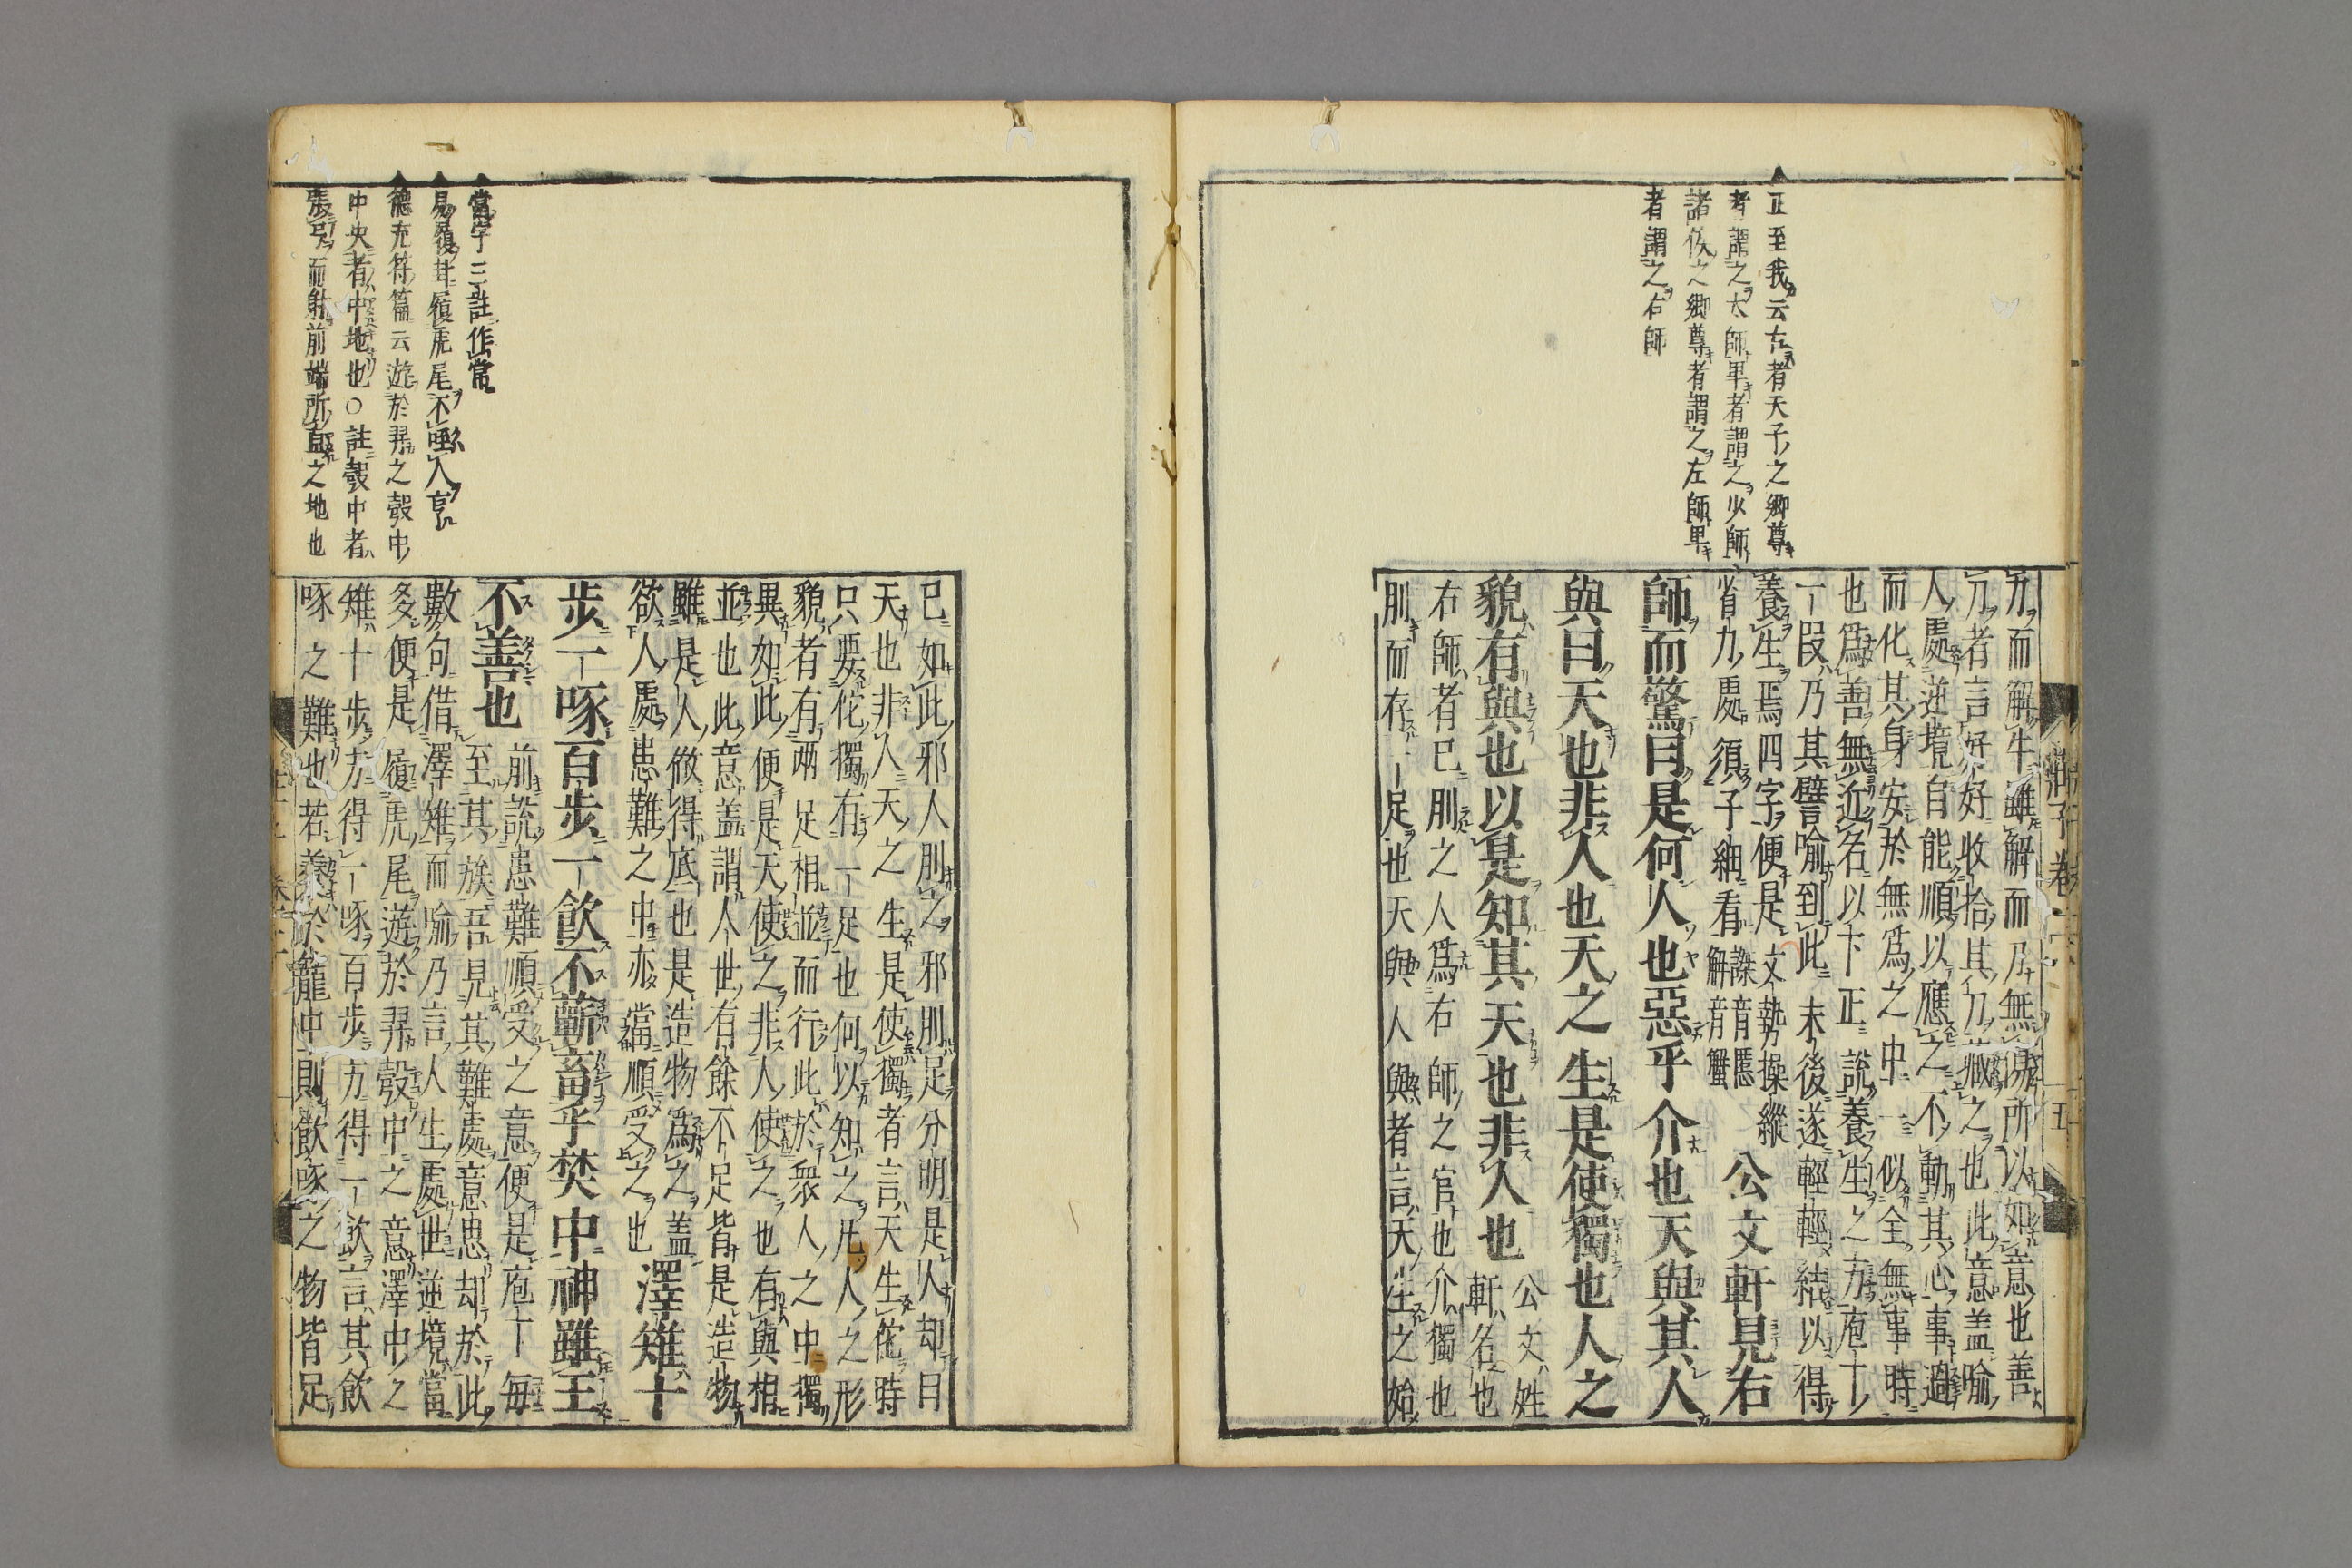 正至我云古者天子之卿尊
者謂之太師卑者謂之少師
諸侯之卿尊者謂之左師卑
者謂之右師
刃而解牛雖解而刃無傷所以如意也善
刀者言好好收拾其刀藏之也此意盖喻
人處逆境自能順以應之不動其心事過
而化其身安於無爲之中一似全無事時
也爲善無近名以下正說養生之方庖丁
一段乃其譬喻到此末後遂輕輕結以得
養生焉四字便是文勢操縱
省力處須子細看謋音隱
解音蟹
公文軒見右
師而驚曰是何人也惡乎介也天與其人
與曰天也非人也天之生是使獨也人之
貌有與也以是知其天也非人也
公文姓
軒名也
右師者已刖之人爲右師之官也介獨也
刖而存一足也天與人與者言天生之始
莊子卷二 五
已如此邪人刖之邪刖足分明是人却曰
天也非人天之生是使獨者言天生佗時
只要佗獨有一足也何以知之凡人之形
貌者有兩足相並而行此於衆人之中獨
異如此便是天使之非人使之也有與相
並也此意盖謂人世有餘不足皆是造物
雖是人做得底也是造物爲之盖
欲人處患難之中亦當順受之也
澤雉十
步一啄百步一飲不蘄畜乎樊中神雖王
不善也
前說患難順受之意便是庖丁每
至其族吾見其難處意思却於此
數句借澤雉而喻乃言人生處世逆境當
多便是履虎尾遊於羿彀中之意澤中之
雉十步方得一啄百步方得一飲言其飲
啄之難也若養於籠中則飲啄之物皆足
當字三註作常
易履卦履虎尾不咥人亨
德充符篇云遊於羿之彀中
中央者中地也○註彀中者
張弓而射前端所直之地也